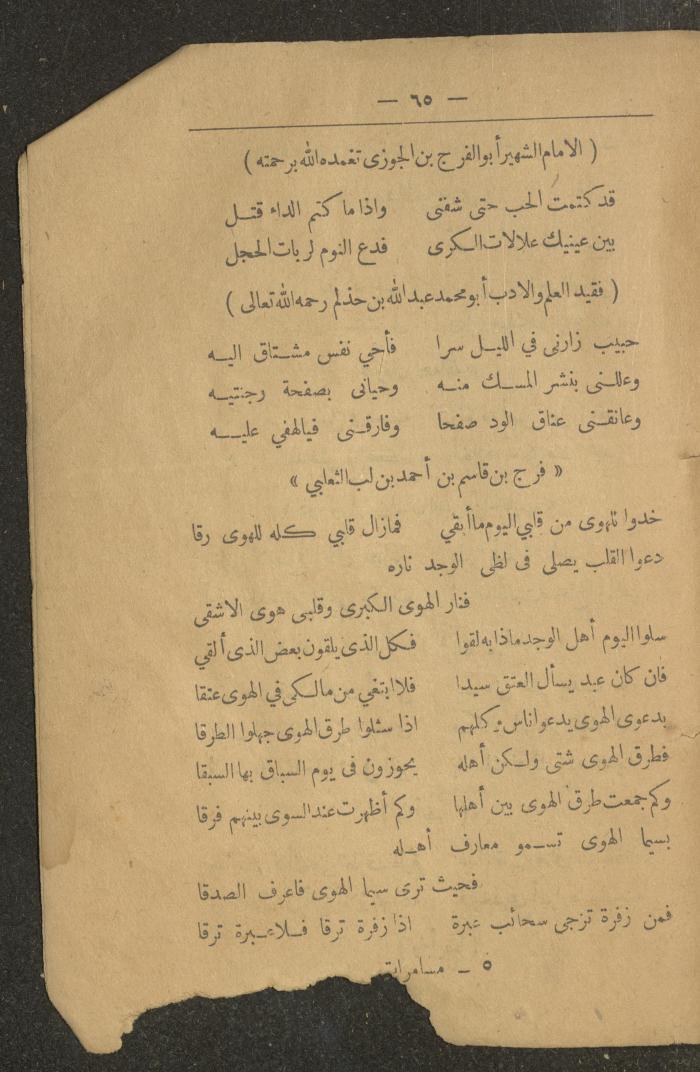 — ٦٥ —
( الامام الشهير أبو الفرج بن الجوزى تغمده الله برحمته )
قد كتمت الحب حتى شفنى واذا ما كتم الداء قتل
بين عينيك علالات الكرى فدع النوم لربات الحجل
( فقيد العلم والادب أبو محمد عبد الله بن حذلم رحمه الله تعالى )
حبيب زارنى في الليل سرا فأحي نفس مشتاق اليه
وعللنى بنشر المسك منه وحيانى بصفحة وجنتيه
وعانقنى عناق الود صفحا وفارقنى فيالهفي عليه
« فرج بن قاسم بن أحمد بن لب الثعلبي »
خدوا للهوى من قلبي اليوم ما أبقي فمازال قلبي كله للهوى رقا
دعوا القلب يصلى فى لظى الوجد ناره
فنار الهوى الكبرى وقلبى هوى الاشقى
سلوا اليوم أهل الوجد ماذا به لقوا فكل الذى يلقون بعض الذى ألقي
فان كان عبد يسأل العتق سيدا فلا ابتغي من مالكى في الهوى عتقا
بدعوى الهوى يدعو اناس وكلهم اذا سئلوا طرق الهوى جهلوا الطرقا
فطرق الهوى شتى ولكن أهله يحوزون فى يوم السباق بها السبقا
وكم جمعت طرق الهوى بين أهلها وكم أظهرت عند السوى بينهم فرقا
بسيما الهوى تسمو معارف أهله
فحيث ترى سيما الهوى فاعرف الصدقا
فمن زفرة تزجى سحائب عبرة اذا زفرة ترقا فلا عبرة ترقا
٥ — مسامرات